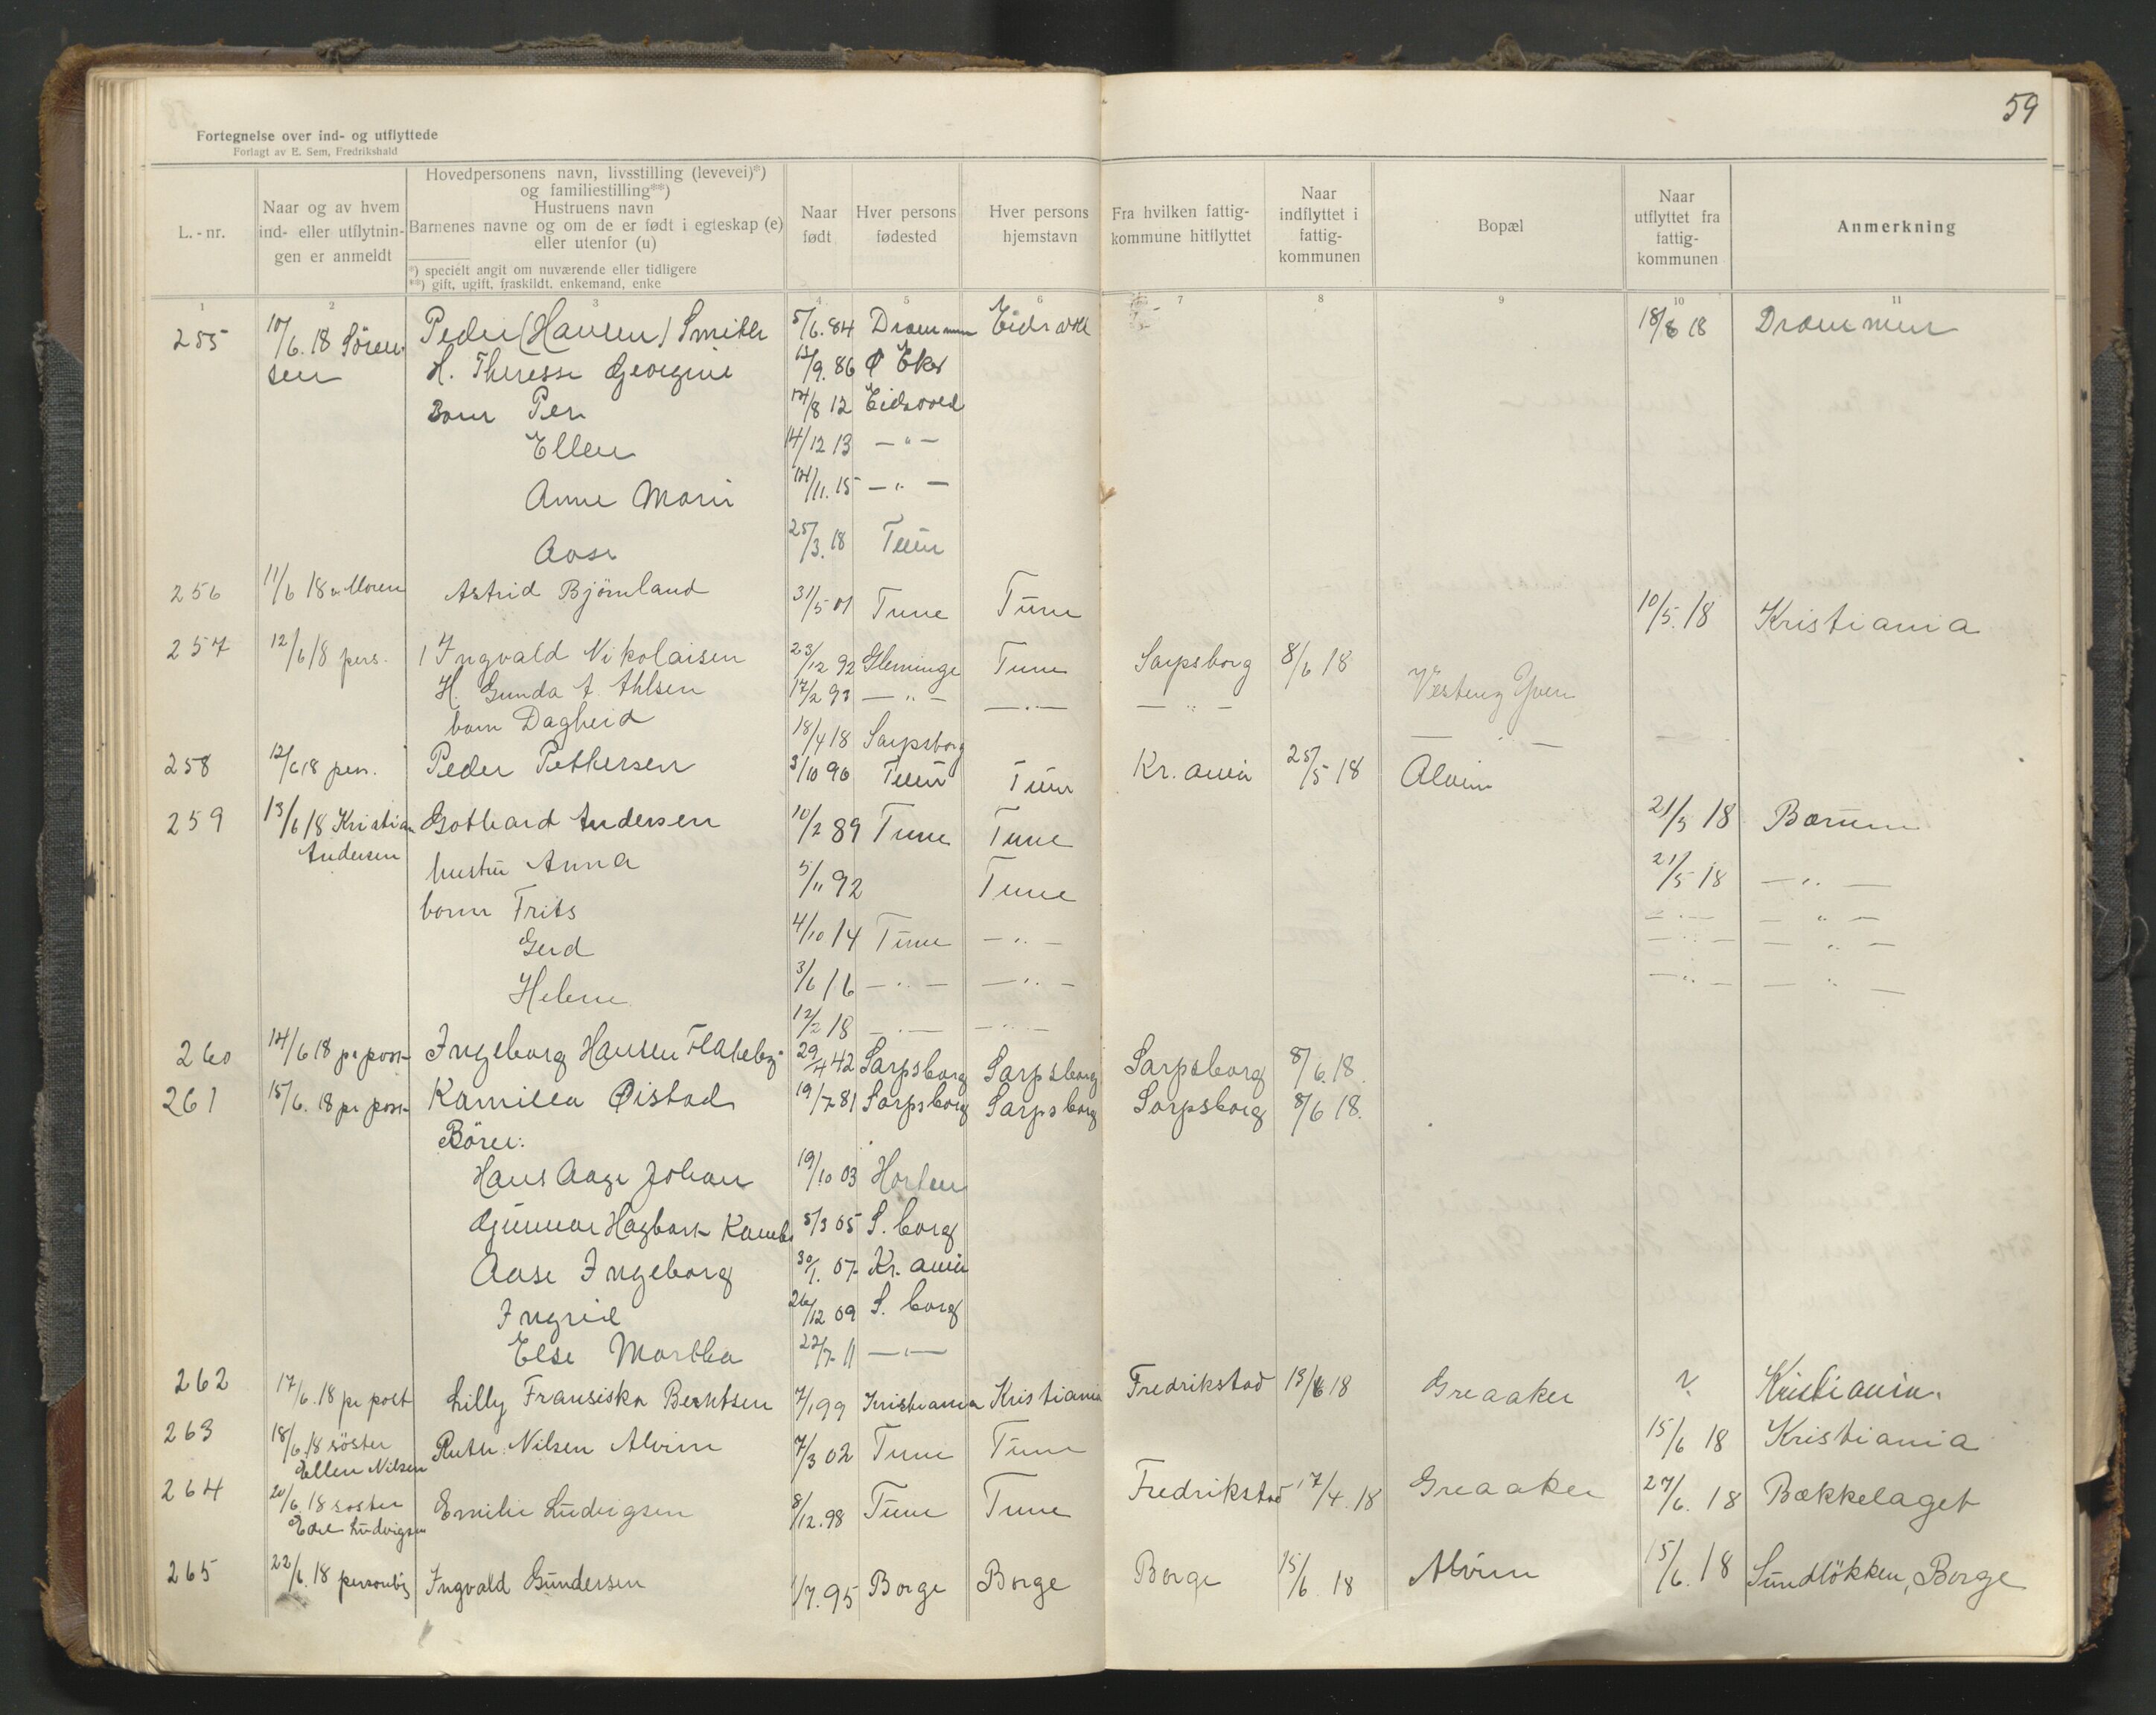 59
Fortegnelse over ind- og utflyttede
Forlagt av E. Sem, Fredrikshald
L.-nr. Naar og av hvem ind- eller utflytnin-gen er anmeldt Hovedpersonens navn, livsstilling (levevei)*) og familiestilling**) Hustruens navn Barnenes navne og om de er født i egteskap (e) eller utenfor (u) Naar født Hver persons fødested Hver persons hjemstavn Fra hvilken fattig-kommune hitflyttet Naar indflyttet i fattig-kommunen Bopæl Naar utflyttet fra fattig-kommunen Anmerkning
*) specielt angit om nuværende eller tidligere
**) gift, ugift, fraskildt, enkemand, enke
1 2 3 4 5 6 7 8 9 10 11
255 10/6.18 Sören- Peder (Hansen) 5/6.84 Drammen Eidsvold 18/6 18 Drammen
sen H. Therese Georgine 12/9.86 Ø Eker
Barn Per 14/8 12 Eidsvold
Ellen 14/12 13 — " —
Anne Marie 14/11.15 — " —
Aase 25/3.18 Tune
256 11/6 18 Moren Astrid Björnland 31/5 01 Tune Tune 10/5.18 Kristiania
257 12/6 18 pers. 1 Ingvald Nikolaisen 23/12 92 Glemminge Tune Sarpsborg 8/6 18
H. Gunda A. Ahlsen 17/2 93 — " — — " — — " — Yven
barn Dagheid 18/4 18 Sarpsborg
258 12/6 18 pers. Peder Pettersen 3/10 96 Tune Tune Kr.ania 25/5 18 Alvim
259 13/6 18 Kristian Gothard Andersen 10/2 89 Tune Tune 21/5 18 Bærum
Andersen hustru Anna 5/11 92 Tune 21/5 18 — " —
barn Frits 4/10 14 Tune — " — — " — — " —
Gerd 3/6 16 — " — — " — — " — — " —
Helene 12/2 18 — " — — " — — " — — " —
260 14/6 18 pr post Ingeborg Hansen 29/4 42 Sarpsborg Sarpsborg Sarpsborg 8/6.18.
261 15/6.18 pr post Kamilla Øistad 19/7 81 Sarpsborg Sarpsborg Sarpsborg 8/6 18.
Börn:
Hans Aage Johan 19/10 03 Horten
Gunnar Hagbart 5/3 05 S.borg
Aase Ingeborg 30/1.07 Kr.ania
Ingrid 26/12 09 S.borg
Else Martha 22/7 11 — " —
262 17/6.18 pr post Lilly Fransiska Berntsen 7/1 99 Kristiania Kristiania Fredrikstad 13/6 18 Greaaker ? Kristiania.
263 18/6.18 söster Ruth Nilsen Alvim 7/3 02 Tune Tune 15/6 18 Kristiania
Ellen Nilsen
264 20/6.18 söster Emilie Ludvigsen 8/12.98 Tune Tune Fredrikstad 17/4.18 Greaaker 27/6.18 Bækkelaget
Ludvigsen
265 22/6.18 personlig Ingvald Gundersen 1/7.95 Borge Borge Borge 15/6.18 Alvim 15/6.18 Sundlökken, Borge